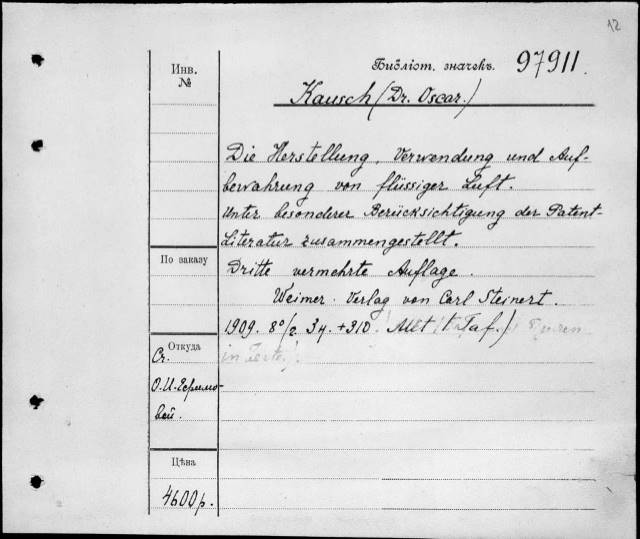 12
Инв. №
Библіот. значекъ. 97911.
Kausch (Dr. Oscar.)
Die Herstellung, Verwendung und Auf-
bewahrung von flüssiger Luft.
Unter besonderer Berücksichtigung der Patent-
Literatur zusammengestellt.
По заказу
Dritte vermehrte Auflage.
Weimer. Verlag von Carl Steinert.
1909. 8°/2 34. +310. Mit 1 Taf.)
Откуда
in Texte.
Ст.
О.И.
вой.
Цѣна
4600р.